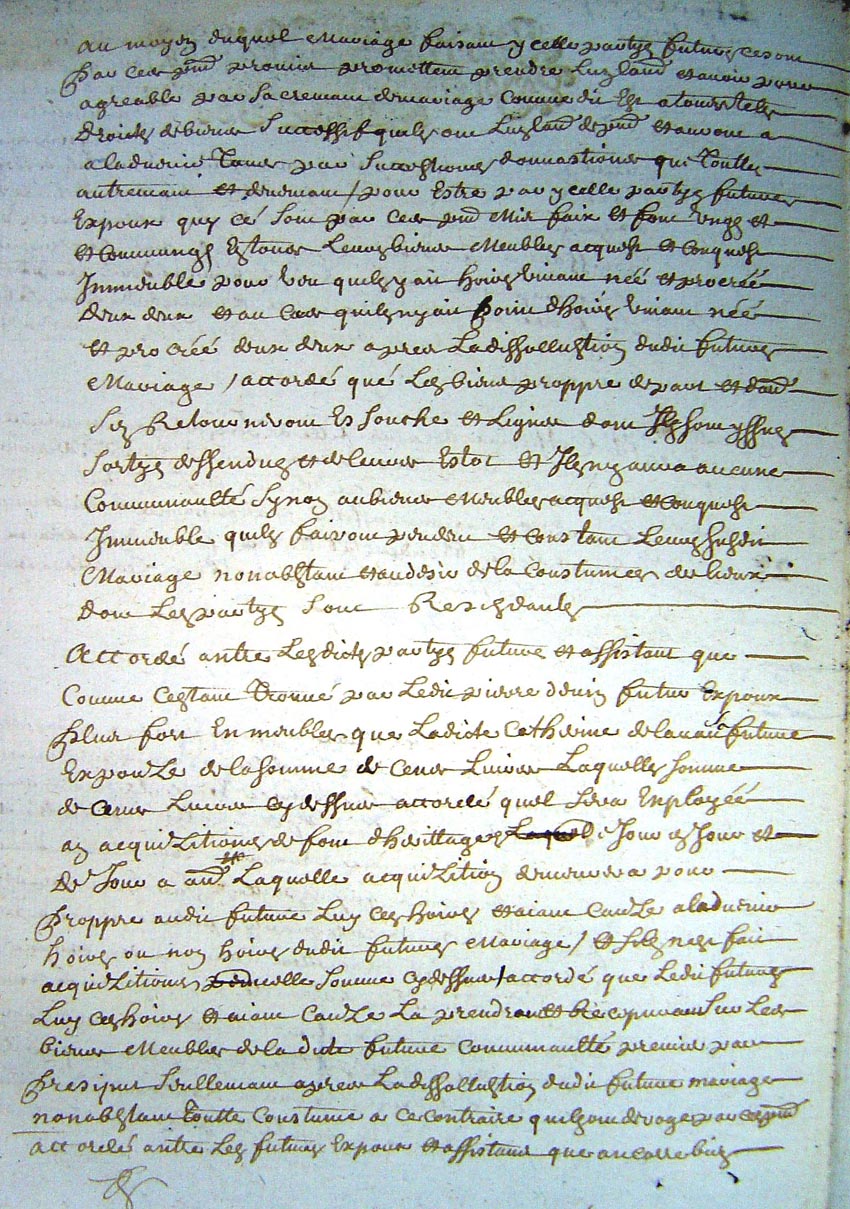 au moyen duquel Mariage faisant ycelle partyes futures ce sont
par ces pnt promis promettent prendre luy laud et avoir pour
agreable par sacrement de mariage comme dit est a tous telz
droictz de biens successif quilz ont luy laud de pnt et auront a
aladvenir tans par successions donnastions que toutte
autrement et deuemant / pour estre par ycelle partyes futures
Expoux quy cé sont par ces pnt mis faix et font ungs et
et commungs Es tous leurs biens Meubles acquest et conquest
Immeuble pour veu quilz y ait hoirs vivant néé et procréé
deux deux et au cas quilz ny ait poinn d'hoirs vivant néé
et procréé deux deux apres La dissollustion dudit futures
Mariage / accordé qué Les biens proppre de part et daud
Sen Retourneront Es souche et Lignes dont Ilz sont yssues
sortys dessendus et de leurs Estoc et Ilz ny aura aucune
Communaulté synon au biens Meubles acquest et conquest
Immeuble quilz fairont pendent et constant Leurs susdit
Mariage nonobstant et au desir de la Coustumes des lieux
dont Les partyes sont Resseydants
Accordé antre Lesdicts partyes futures et assistant que
Comme Cestant trouvé par Ledit pierre denis futur Expoux
plus fort En meubles que Ladicte Catherine delavau sa future
Expouze de la somme de Cens Livres Laquelle somme
de Cens Livres cy dessus accordé quel sera Employéé
an acquizitions de font d'herittages de Jour en Jour et
de Jour a aud Laquelle acquizition demeurera pour
proppre audit future Luy ces hoirs et aiant Cauze aladvenir
hoirs ou non hoirs dudit futures Mariage / et silz nest fait
acquizitions dicelle somme cy dessus / accordé que Ledit futures
Luy ces hoirs et aiant Cauze La prendront et Recepvrant sur Les
biens Meubles de la dicte future Communaulté premier par
presiput seullemant apres La dissollustion dudit future mariage
nonobstant toutte Coustume a ce contraire quilz ont deroge par ces pnt
accordé antre Les futures Expoux et assistans que au carre bien